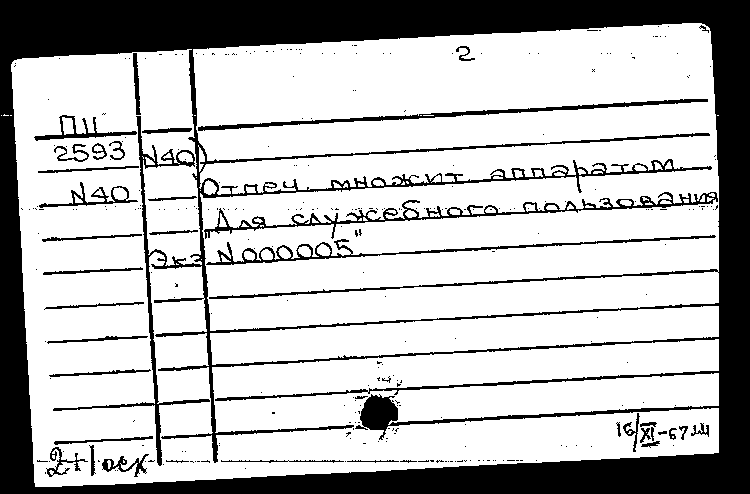 2
П11
2593 N40)
N40 Отпеч. множит аппаратом
„Для служебного пользования
Экз N000005"
16/XI-67
2+1 осх